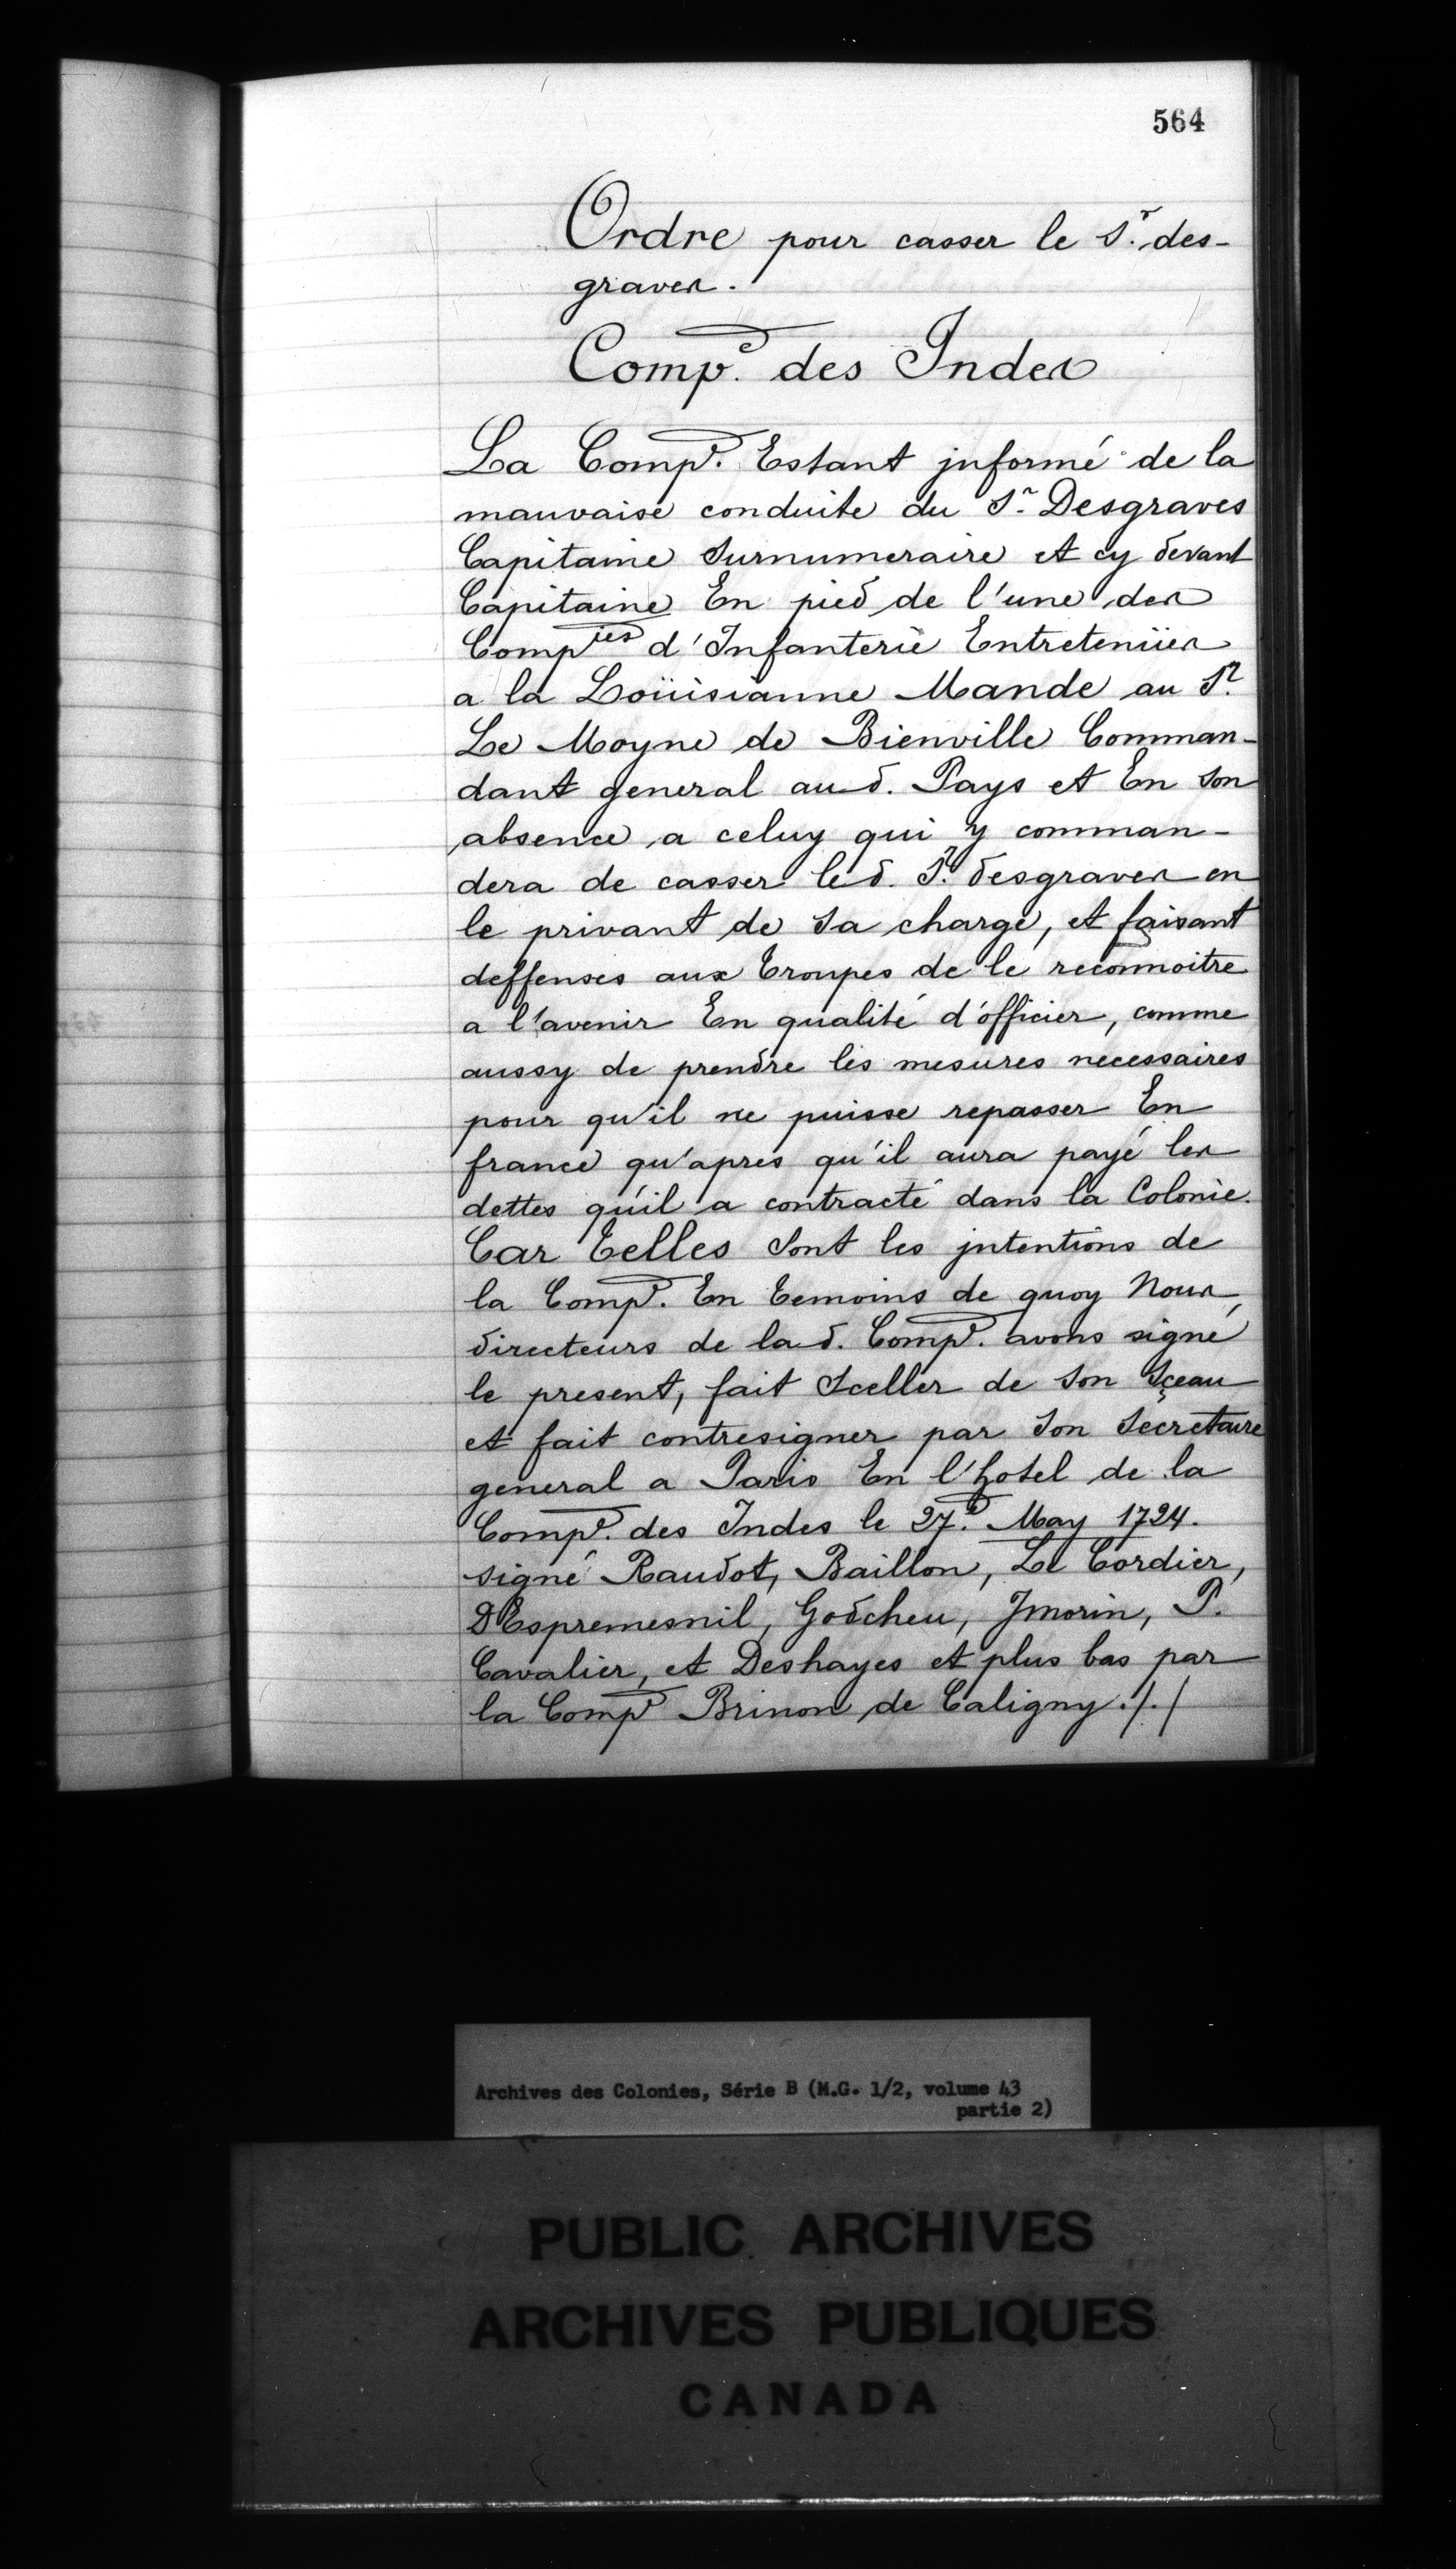 564
Ordre pour casser le Sr. des-
graves.
Compe. des Indes
La Compe. Estant jnformé de la
mauvaise conduite du Sr. Desgraves
Capitaine Surnumeraire et cy devant
Capitaine En pied de l'une des
Compies d'Infanterie Entretenües
a la Loüisianne Mande au Sr.
Le Moyne de Bienville Comman-
dant general aud. Pays et En son
absence a celuy qui y comman-
dera de casser led. Sr. desgraves en
le privant de sa charge, et faisant
deffenses aux troupes de le reconnoitre
a l'avenir En qualité d'officier, comme
aussy de prendre les mesures necessaires
pour qu'il ne puisse repasser En
france qu'apres qu'il aura payé les
dettes qu'il a contracté dans la Colonie.
Car telles sont les jntentions de
la Compe. En temoins de quoy Nous,
directeurs de lad. Compe. avons signé
le present, fait sceller de son sçeau
et fait contresigner par son secretaire
general a Paris En l'hotel de la
Compe. des Indes le 27e. May 1724.
signé Raudot, Baillon, Le Cordier,
D'Espremesnil, Godcheu, Jmorin, P.
Cavalier, et Deshayes et plus bas par
la Compe Brinon de Caligny ./.
Archives des Colonies, Série B (M.G. 1/2, volume 43
partie 2)
PUBLIC ARCHIVES
ARCHIVES PUBLIQUES
CANADA